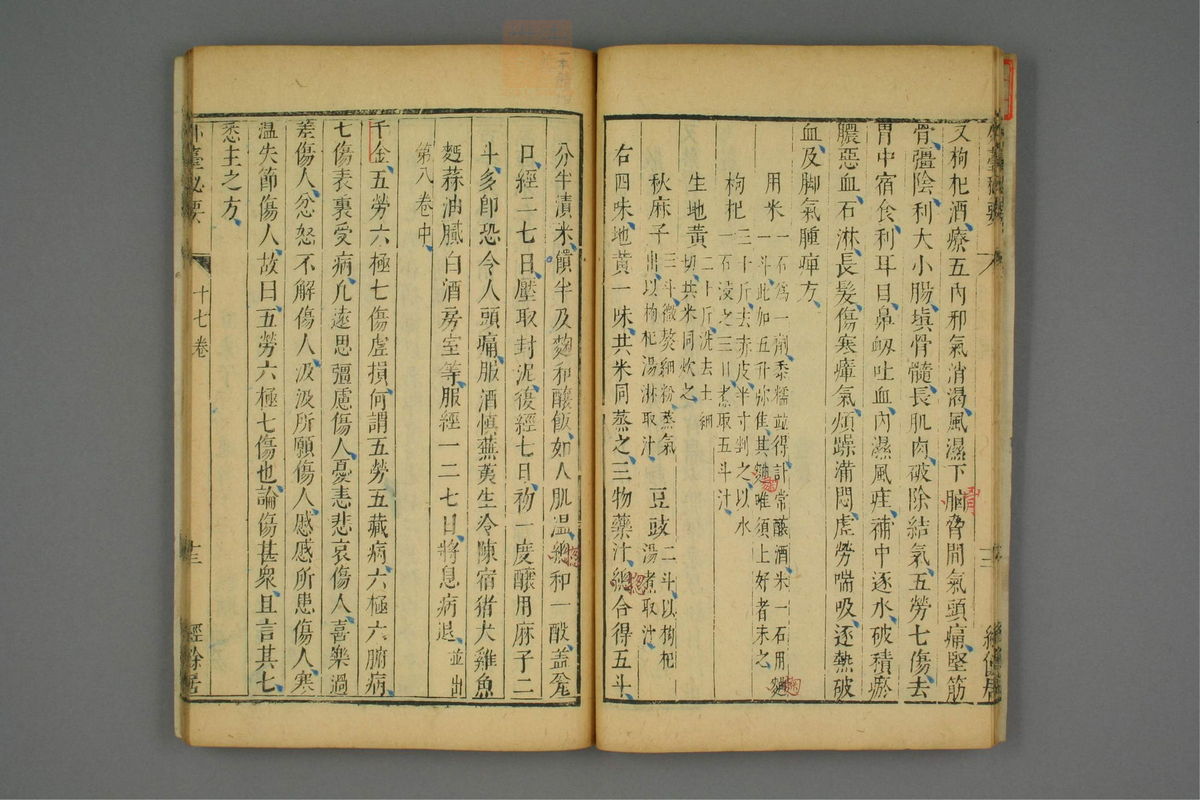 又枸杞酒療五內邪氣消渴風濕下胸脅間氣頭痛堅筋
骨彊陰利大小腸塡骨髓長肌肉破除結氣五勞七傷去
胃中宿食利耳目鼻衂吐血內濕風疰補中逐水破積瘀
膿惡血石淋長髮傷寒瘴氣煩躁滿悶虛勞喘吸逐熱破
血及脚氣腫痺方
用米一石爲一劑黍糯並得計常釀酒米一石用
一斗此加五升弥佳其唯須上好者末之
枸杞三十斤去赤皮半寸剉之以水
一石浸之三日煮取五斗汁
生地黄二十斤洗去土細
切共米同炊之
秋麻子三斗微熬細粉蒸氣
出以枸杞湯淋取汁
豆豉二斗以枸杞
湯煮取汁
右四味地黄一味共米同蒸之三物藥汁總合得五斗
分半漬米饙半及麴和釀飯如人肌温總和一酘盖瓮
口經二七日壓取封泥復經七日初一度釀用麻子二
斗多卽恐令人頭痛服酒愼蕪荑生冷陳宿猪犬雞魚
麪蒜油膩白酒房室等服經一二七日將息病退並出
第八卷中
千金五勞六極七傷虛損何謂五勞五藏病六極六腑病
七傷表裏受病凡遠思彊慮傷人憂恚悲哀傷人喜樂過
差傷人忿怒不解傷人汲汲所願傷人慼慼所患傷人寒
温失節傷人故曰五勞六極七傷也論傷甚衆且言其七
悉主之方
外臺秘要
十七卷
經餘居